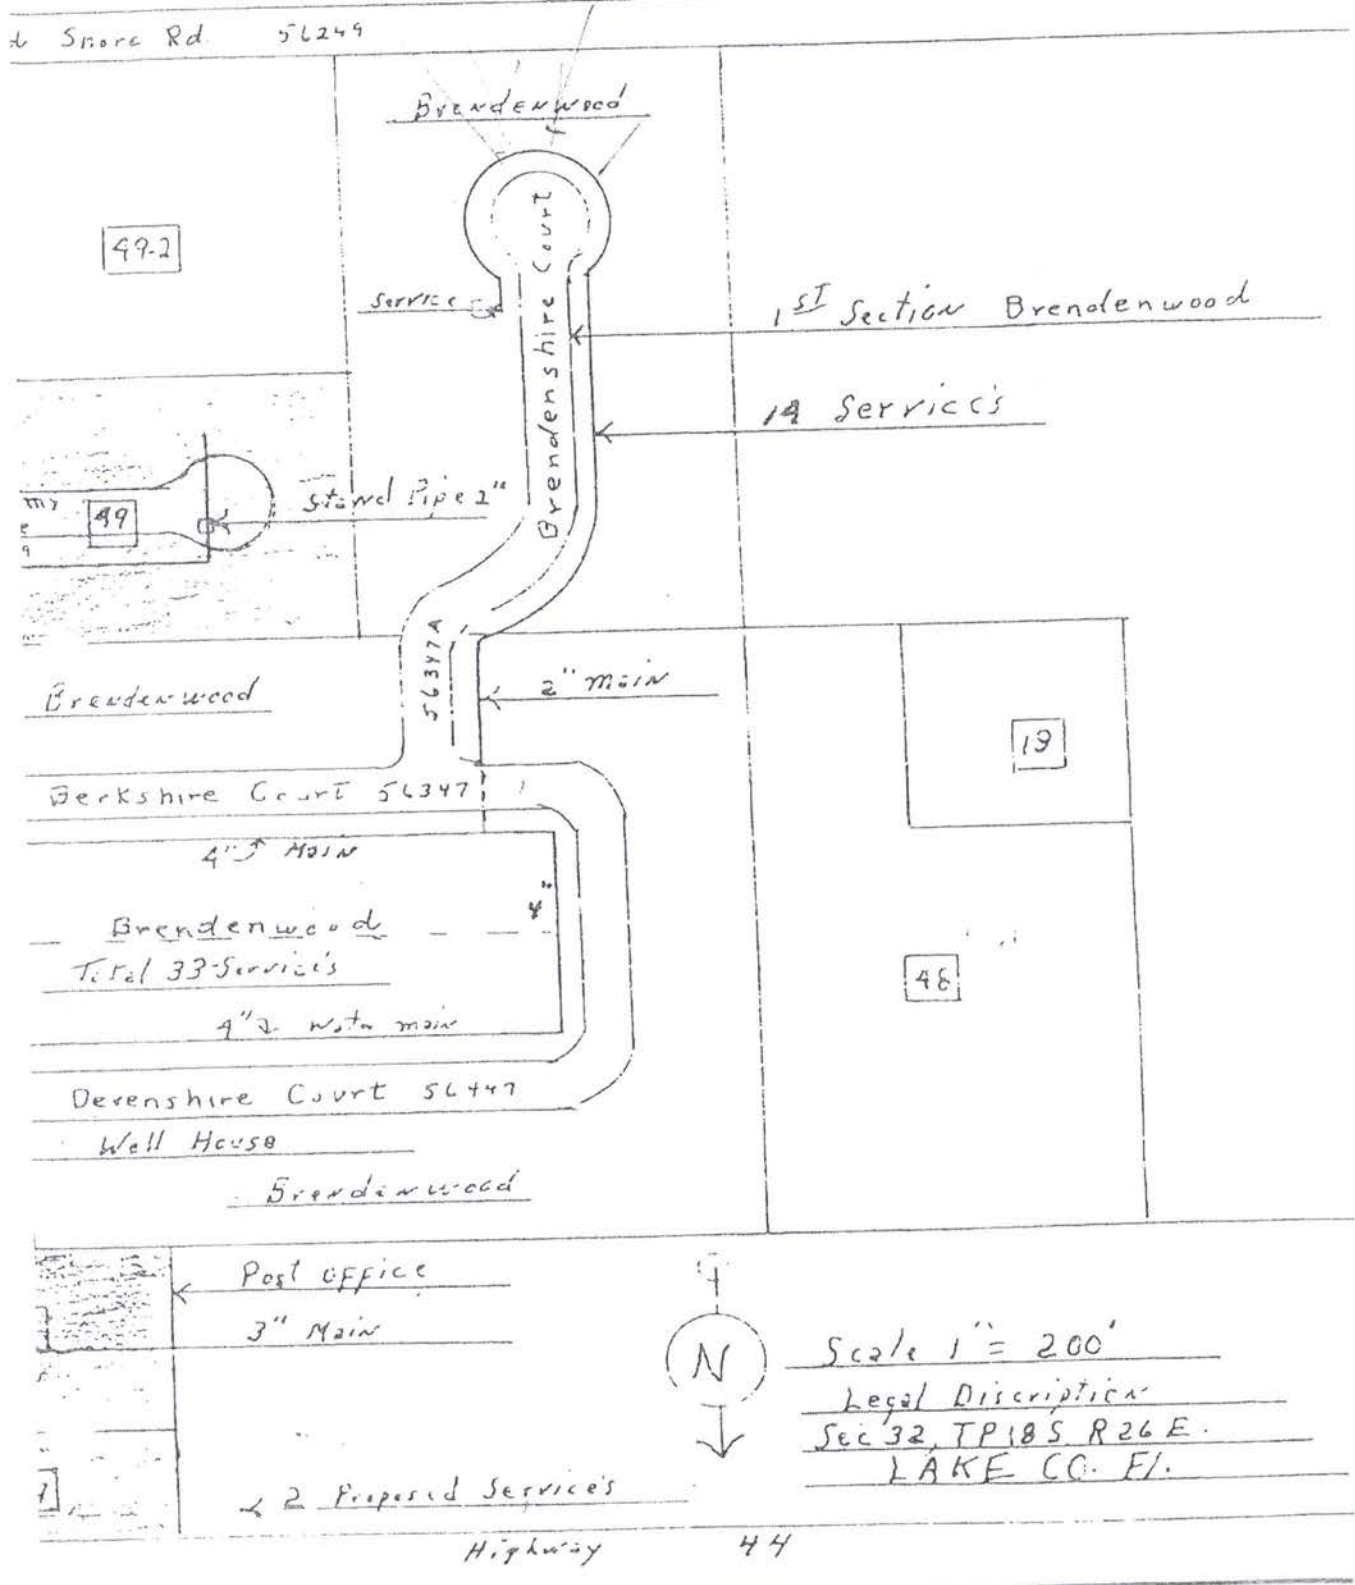 Shore Rd. 56249
Brendenwood
49-2
Service
Brendenshire Court
1ST Section Brendenwood
14 Service's
Stand Pipe 2"
49
56347A
Brendenwood
2" main
Berkshire Court 56347
4" Main
Brendenwood
Total 33 Service's
4" water main
Devenshire Court 56447
Well House
Brendenwood
Post office
3" Main
N
Scale 1" = 200'
Legal Discription
Sec 32, TP 18 S R 26 E.
LAKE CO. Fl.
2 Proposed Service's
Highway 44